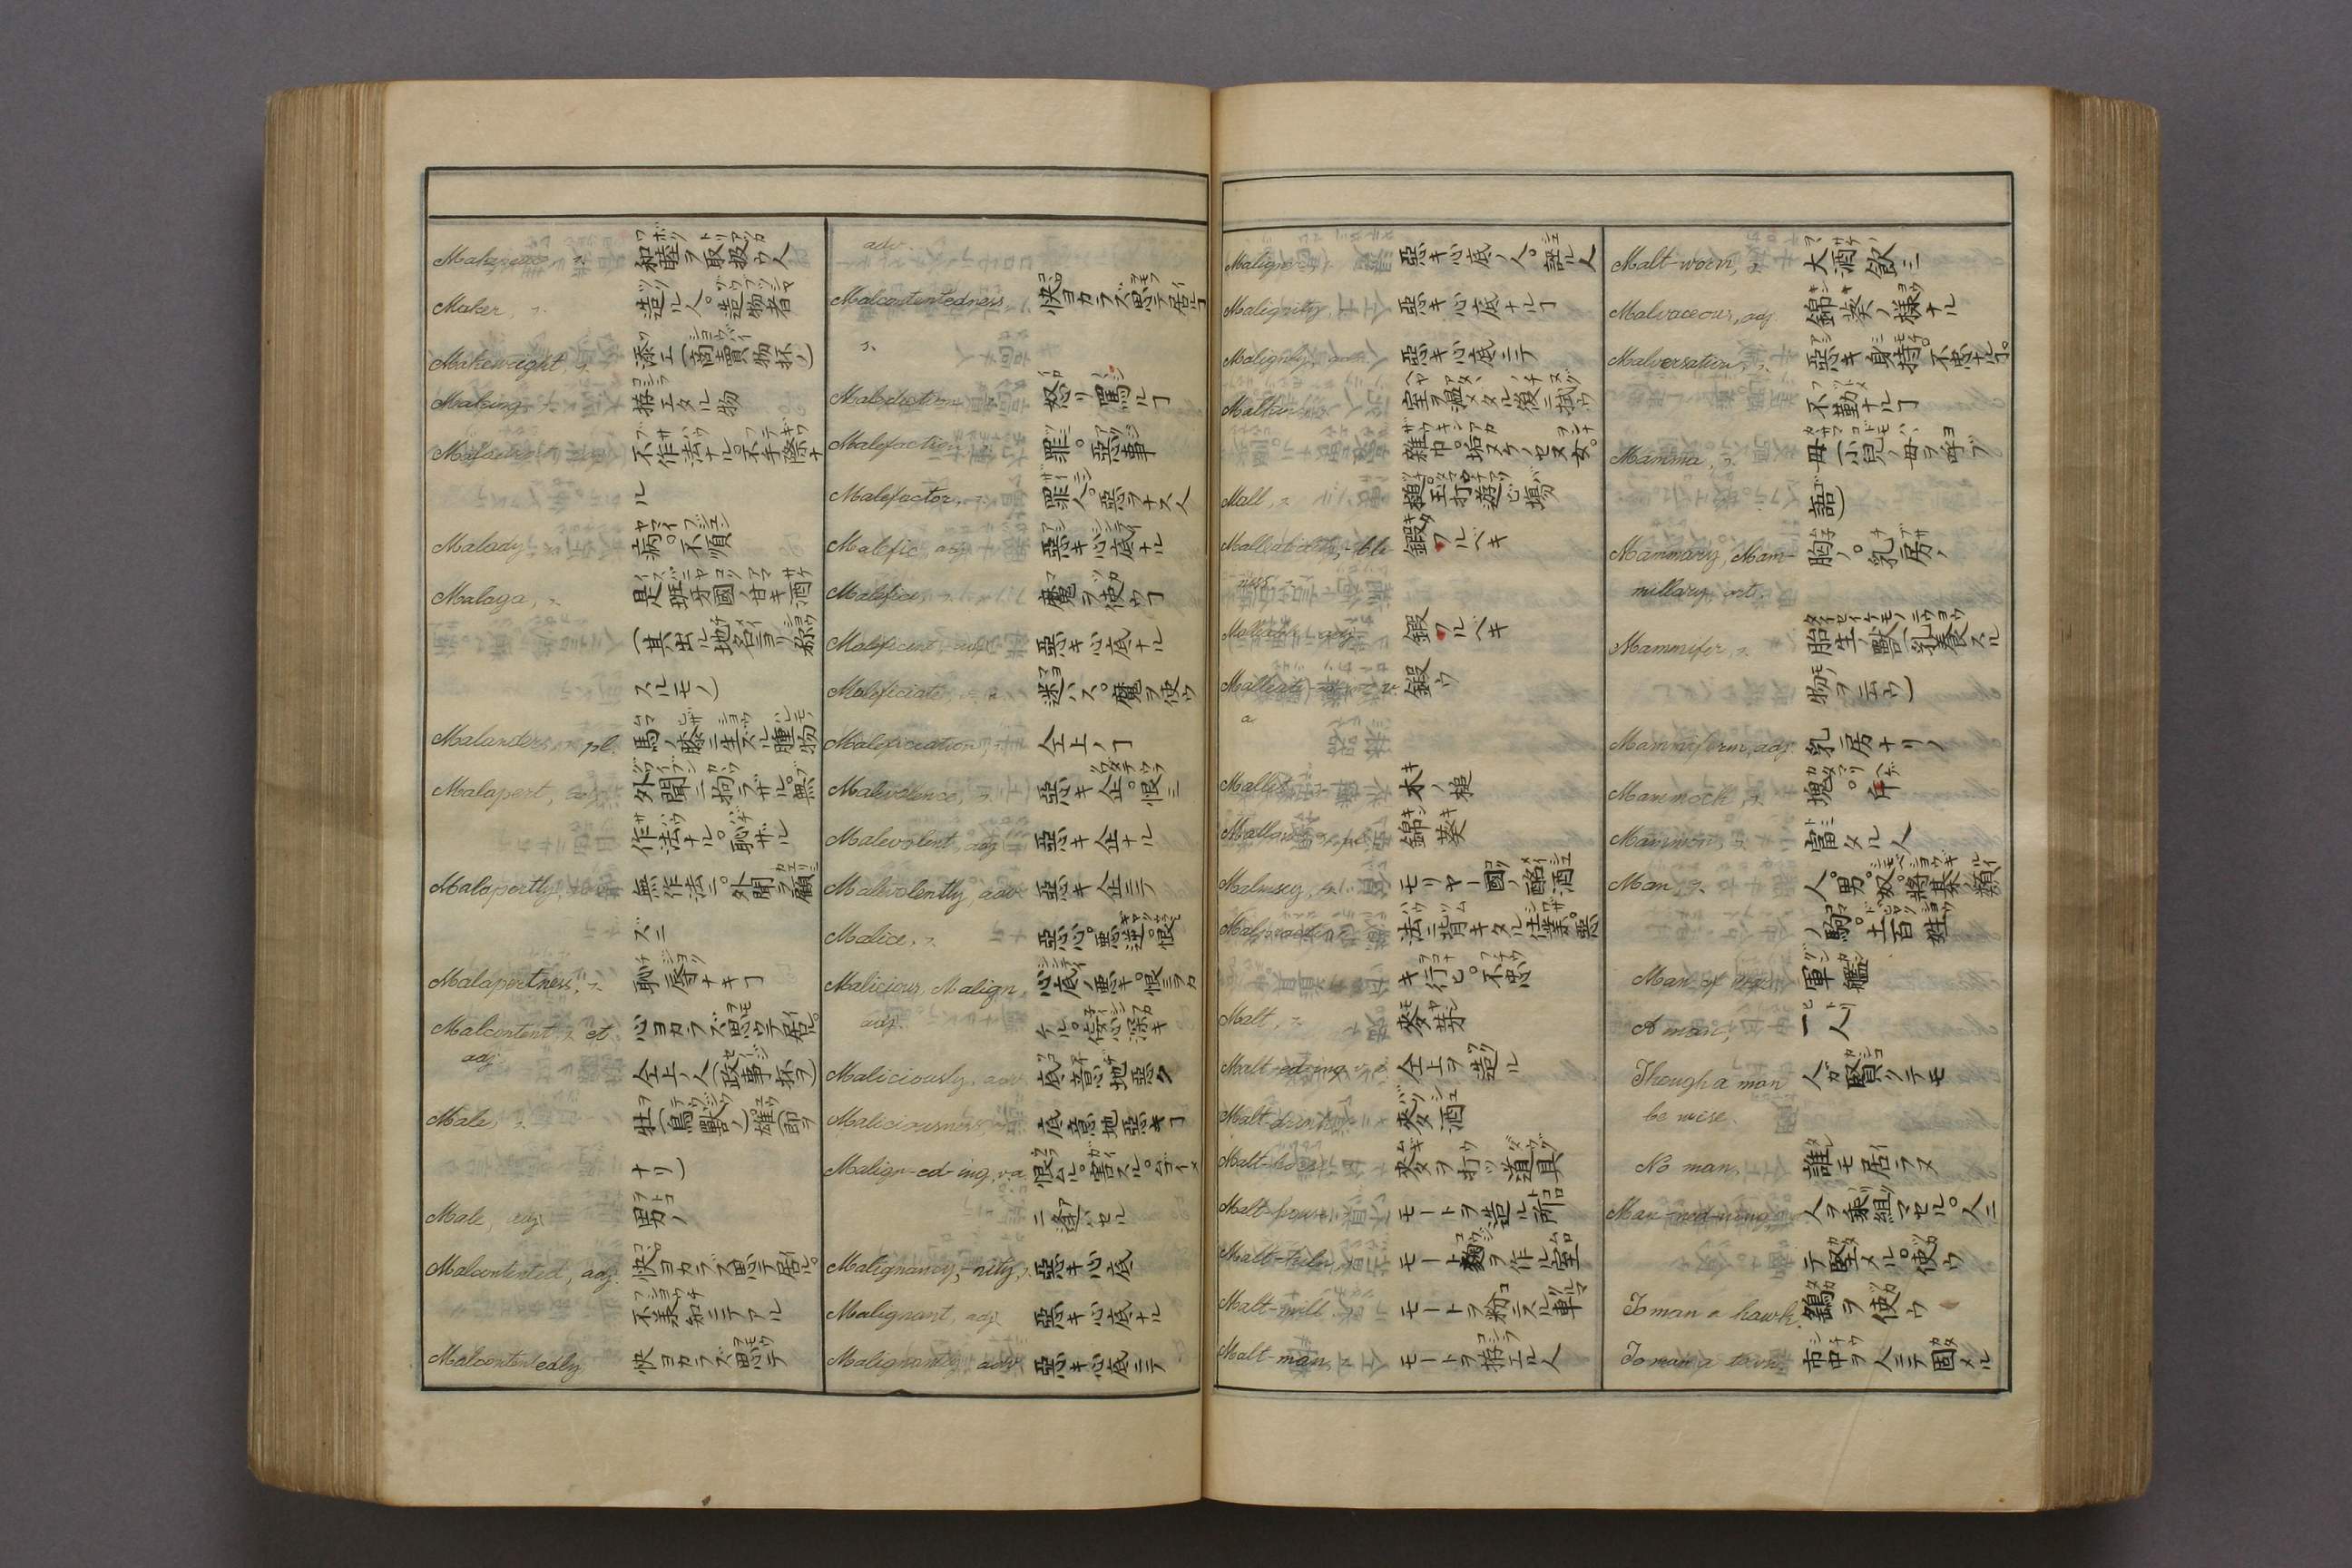 Makepeace, n. 和睦ヲ取扱ウ人
Maker, n. 造ル人。造物者
Makeweight, n. 添エ(商賣物抔ノ)
Making, n. 拵エタル物
不作法ナル。不手際ナ
ル
Malady, n. 病。不順
Malaga, n. 是班牙國ノ甘キ酒
(其出ル地名ヨリ称
スルモノ)
Malanders, n. pl. 馬ノ膝ニ生ズル腫物
Malapert, adj. 外聞ニ拘ラザル。無
作法ナル。恥ザル
Malapertly, adv. 無作法ニ。外聞ヲ顧
ズニ
Malapertness, n. 恥辱ナキヿ
Malcontent, n. et 心ヨカラズ思テ居ル。
adj. 仝上ノ人(政事抔ヲ)
Male, n. 牡(鳥獸ノ)雄(節ヲ
ナリ)
Male, adj. 男ノ
Malcontented, adj. 快ヨカラズ思テ居ル。
不承知ニテアル
Malcontentedly, 快ヨカラズ思テ
adv.
Malcontentedness, 快ヨカラズ思テ居ルヿ
n.
Malediction, n. 怒リ罵ルヿ
Malefaction, n. 罪。惡事
Malefactor, n. 罪人。惡ヲナス人
Malefic, adj. 惡キ心底ナル
Malefice, n. 魔ヲ使ウヿ
Maleficent, adj. 惡キ心底ナル
Maleficiate, 迷ハス。魔ヲ使ウ
Maleficiation, n. 仝上ノヿ
Malevolence, n. 惡キ企。恨ミ
Malevolent, adj. 惡キ企ナル
Malevolently, adv. 惡キ企ニテ
Malice, n. 惡心。惡逆。恨
Malicious, Malign, 心底ノ悪キ。恨ヲカ
adj. ケル。侫心深キ
Maliciously, adv. 底意地惡ク
Maliciousness, n. 底意地惡キヿ
Malign-ed-ing, v.a. 恨ムル。害スル。
ニ逢ハセル
Malignancy,-nity, n. 惡キ心底
Malignant, adj. 惡キ心底ナル
Malignantly, adv. 惡キ心底ニテ
Maligner, n. 惡キ心底ノ人。譖ル人
Malignity, n. 惡キ心底ナルヿ
Malignly, adv. 惡キ心底ニテ
Malkin, n. 室ヲ温メタル後ニ拭ウ
雜巾。垢ヌケノセヌ女。
Mall, n. 槌。玉打遊ビ場
Malleability,-ble- 鍛フルベキ
ness, n.
Malleable, adj. 鍛フルベキ
Malleate, v. 鍛ウ
a.
Mallet, n. 木ノ槌
Mallow, n. pl. 錦葵
Malmsey, n. モリヤー國ノ酩酒
Malpractice, n. 法ニ背キタル仕業。惡
キ行ヒ。不忠
Malt, n. 麥芽
Malt-ed-ing, v.a. 仝上ヲ造ル
Malt-drink, n. 麥酒
麥ヲ打ツ道具
Malt-house, n. モートヲ造ル所
Malt-kiln, n. モート麴ヲ作ル室
Malt-mill, モートヲ粉ニスル車
Malt-man, n. モートヲ拵エル人
Malt-worm, n. 大酒飲ミ
Malvaceous, adj. 錦葵ノ様ナル
Malversation, n. 惡キ身持。不忠ナルヿ。
不勤ナルヿ
Mamma, n. 母(小兒ノ母ヲ呼ブ
語)
Mammary, Mam- 胸ノ。乳房ノ
millary, art.
Mammifer, n. 胎生ノ獸(乳養スル
物ヲ云ウ)
Mammiform, adj. 乳房ナリノ
Mammock, n. 塊。片
Mammon, n. 富タル人
Man, n. 人。男。奴。將棊ノ類
ノ駒。土百姓
Man of war, 軍艦
A man, 一人
Though a man 人ガ賢クテモ
be wise.
No man, 誰モ居ラヌ
Man-ned-ning, 人ヲ乗組マセル。人ニ
テ堅メル。使ウ
To man a hawk, 鷂ヲ使ウ
To man a town. 市中ヲ人ニテ固メル